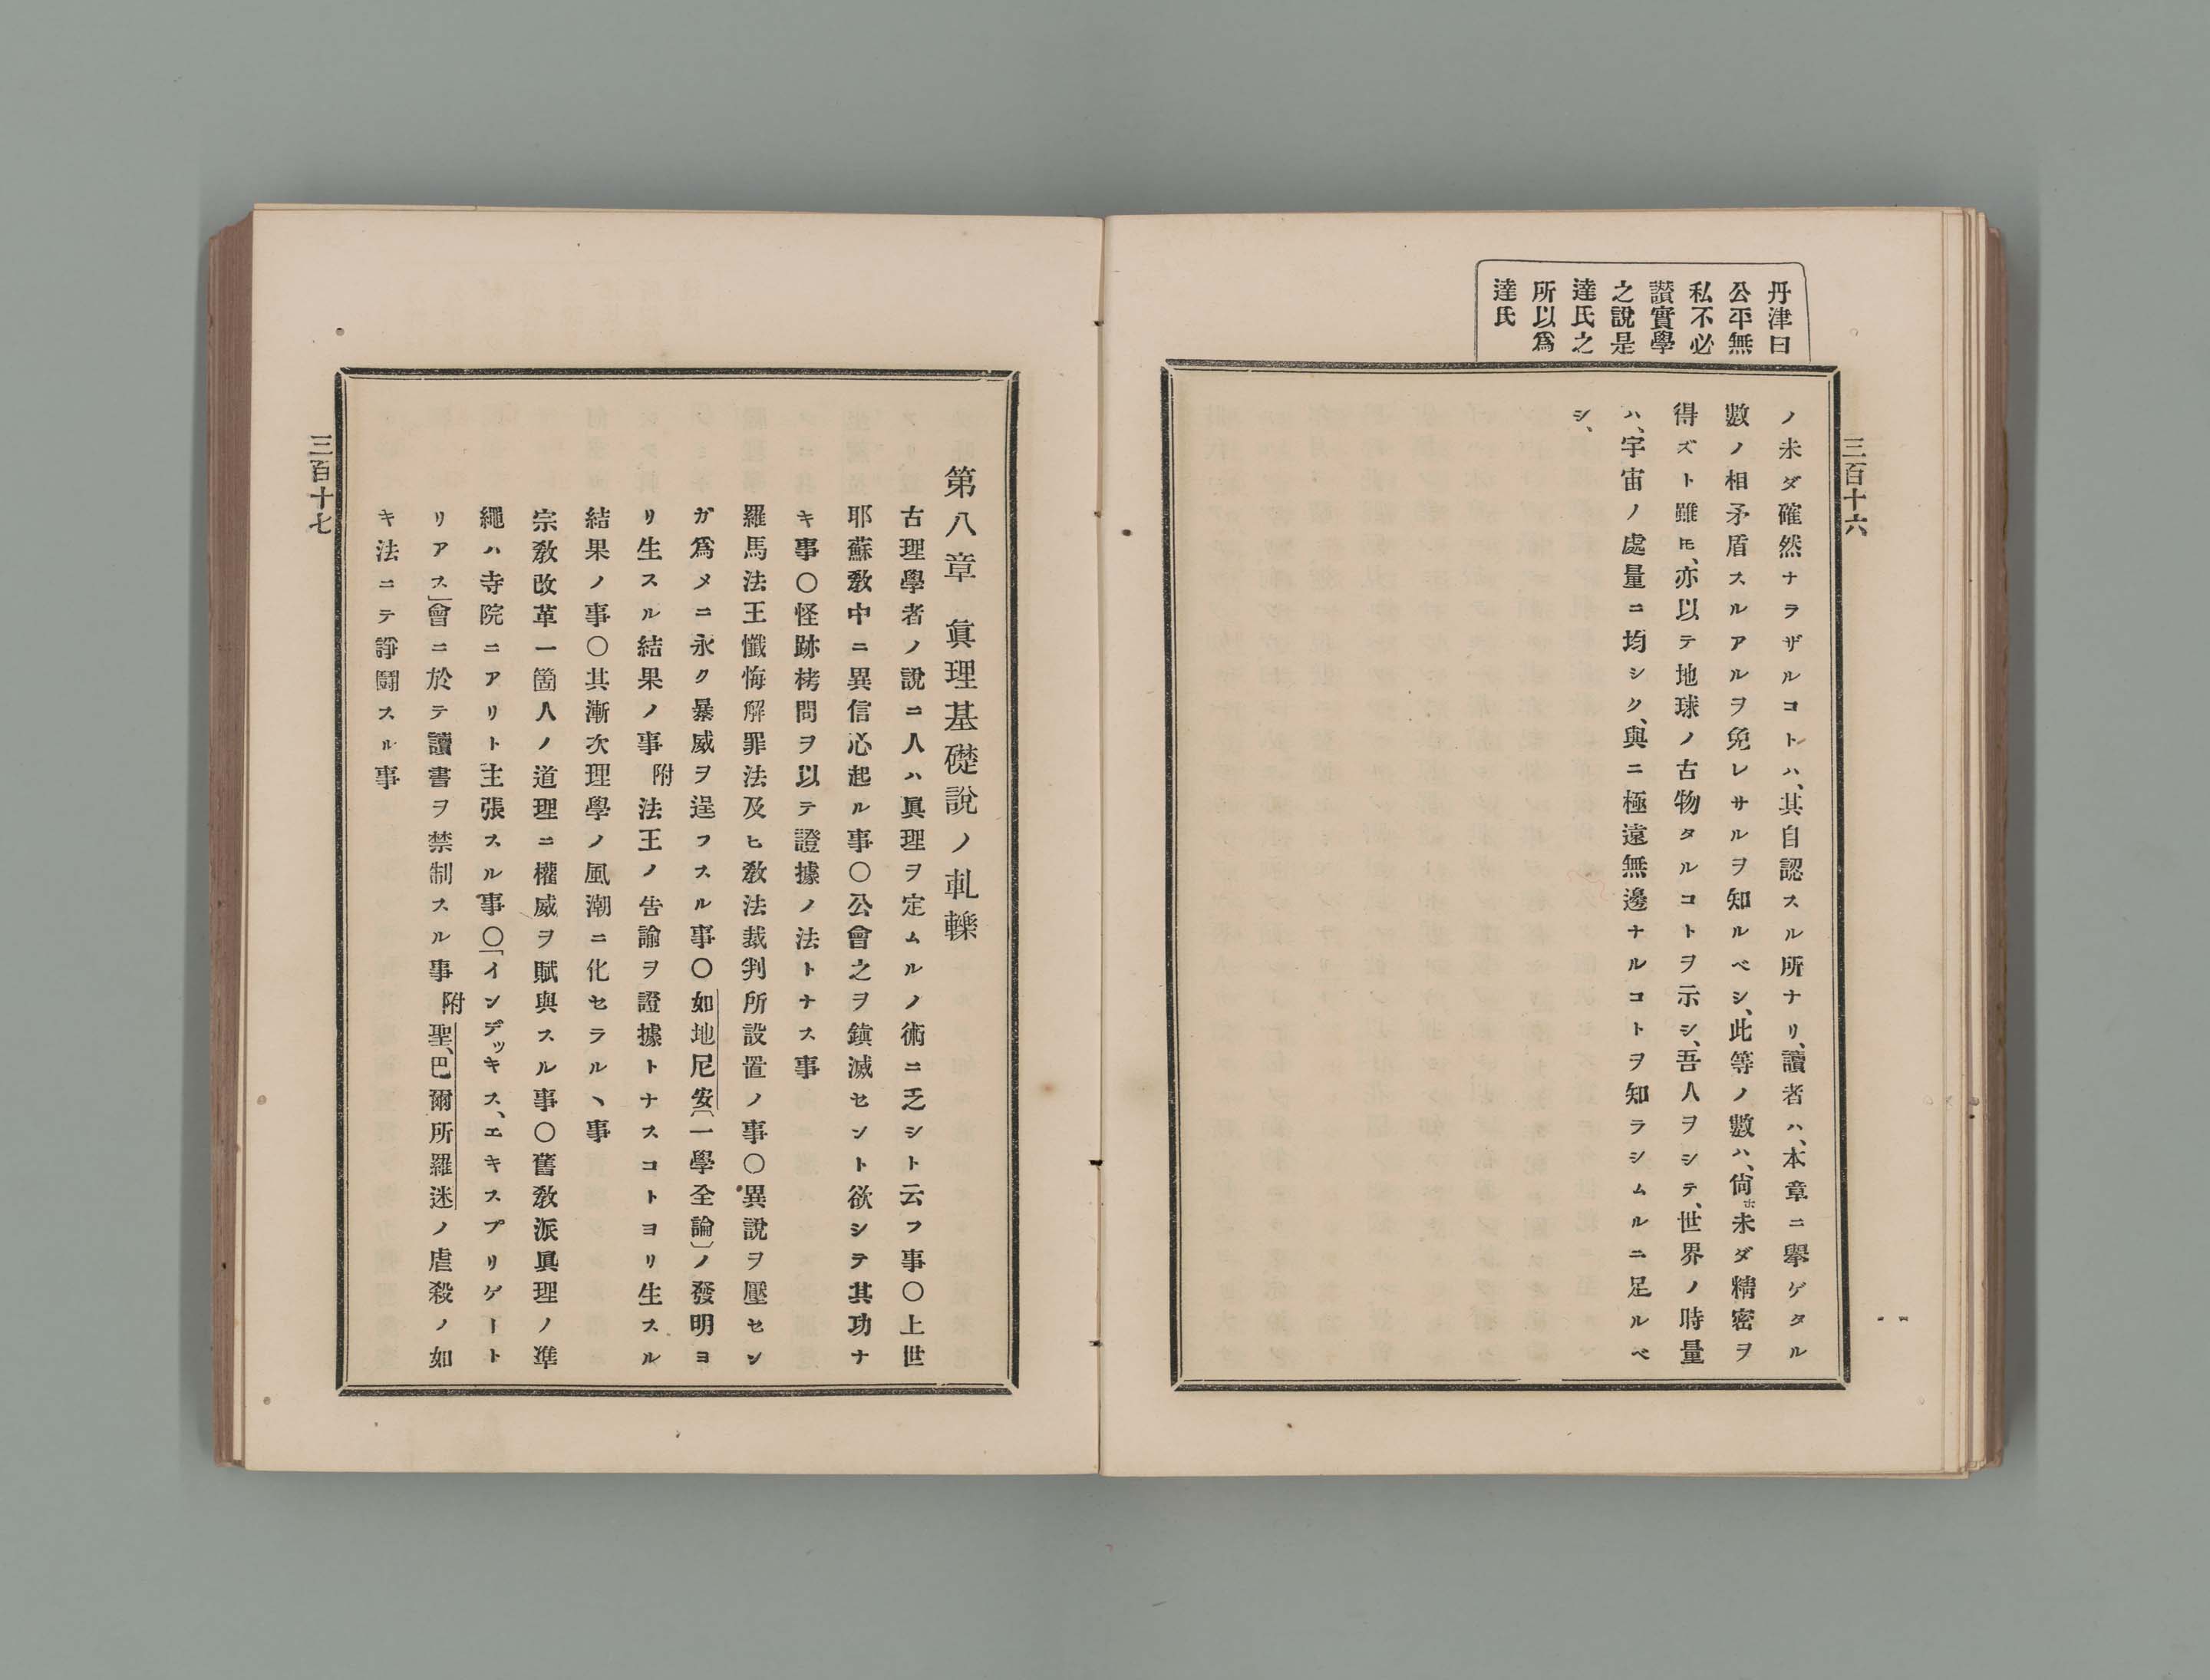 三百十六
丹津曰
公平無
私不必
讃實學
之說是
達氏之
所以爲
達氏
ノ未ダ確然ナラザルコトハ、其自認スル所ナリ、讀者ハ、本章ニ擧ゲタル
數ノ相矛盾スルアルヲ免レサルヲ知ルベシ、此等ノ數ハ、尙ホ未ダ精密ヲ
得ズト雖𪜈、亦以テ地球ノ古物タルコトヲ示シ、吾人ヲシテ、世界ノ時量
ハ、宇宙ノ處量ニ均シク、與ニ極遠無邊ナルコトヲ知ラシムルニ足ルベ
シ、
第八章 眞理基礎說ノ軋轢
古理學者ノ說ニ人ハ眞理ヲ定ムルノ術ニ乏シト云フ事〇上世
耶蘇敎中ニ異信心起ル事〇公會之ヲ鎭滅セント欲シテ其功ナ
キ事〇怪跡栲問ヲ以テ證據ノ法トナス事
羅馬法王懺悔解罪法及ヒ敎法裁判所設置ノ事〇異說ヲ壓セン
ガ爲メニ永ク暴威ヲ逞フスル事〇如地尼安〔一學全論〕ノ發明ヨ
リ生スル結果ノ事 附 法王ノ告諭ヲ證據トナスコトヨリ生スル
結果ノ事〇其漸次理學ノ風潮ニ化セラルヽ事
宗敎改革一箇人ノ道理ニ權威ヲ賦與スル事〇舊敎派眞理ノ準
繩ハ寺院ニアリト主張スル事〇「インデッキス、エキスプリゲート
リアス」會ニ於テ讀書ヲ禁制スル事 附 聖、巴爾所羅迷ノ虐殺ノ如
キ法ニテ諍鬪スル事
三百十七